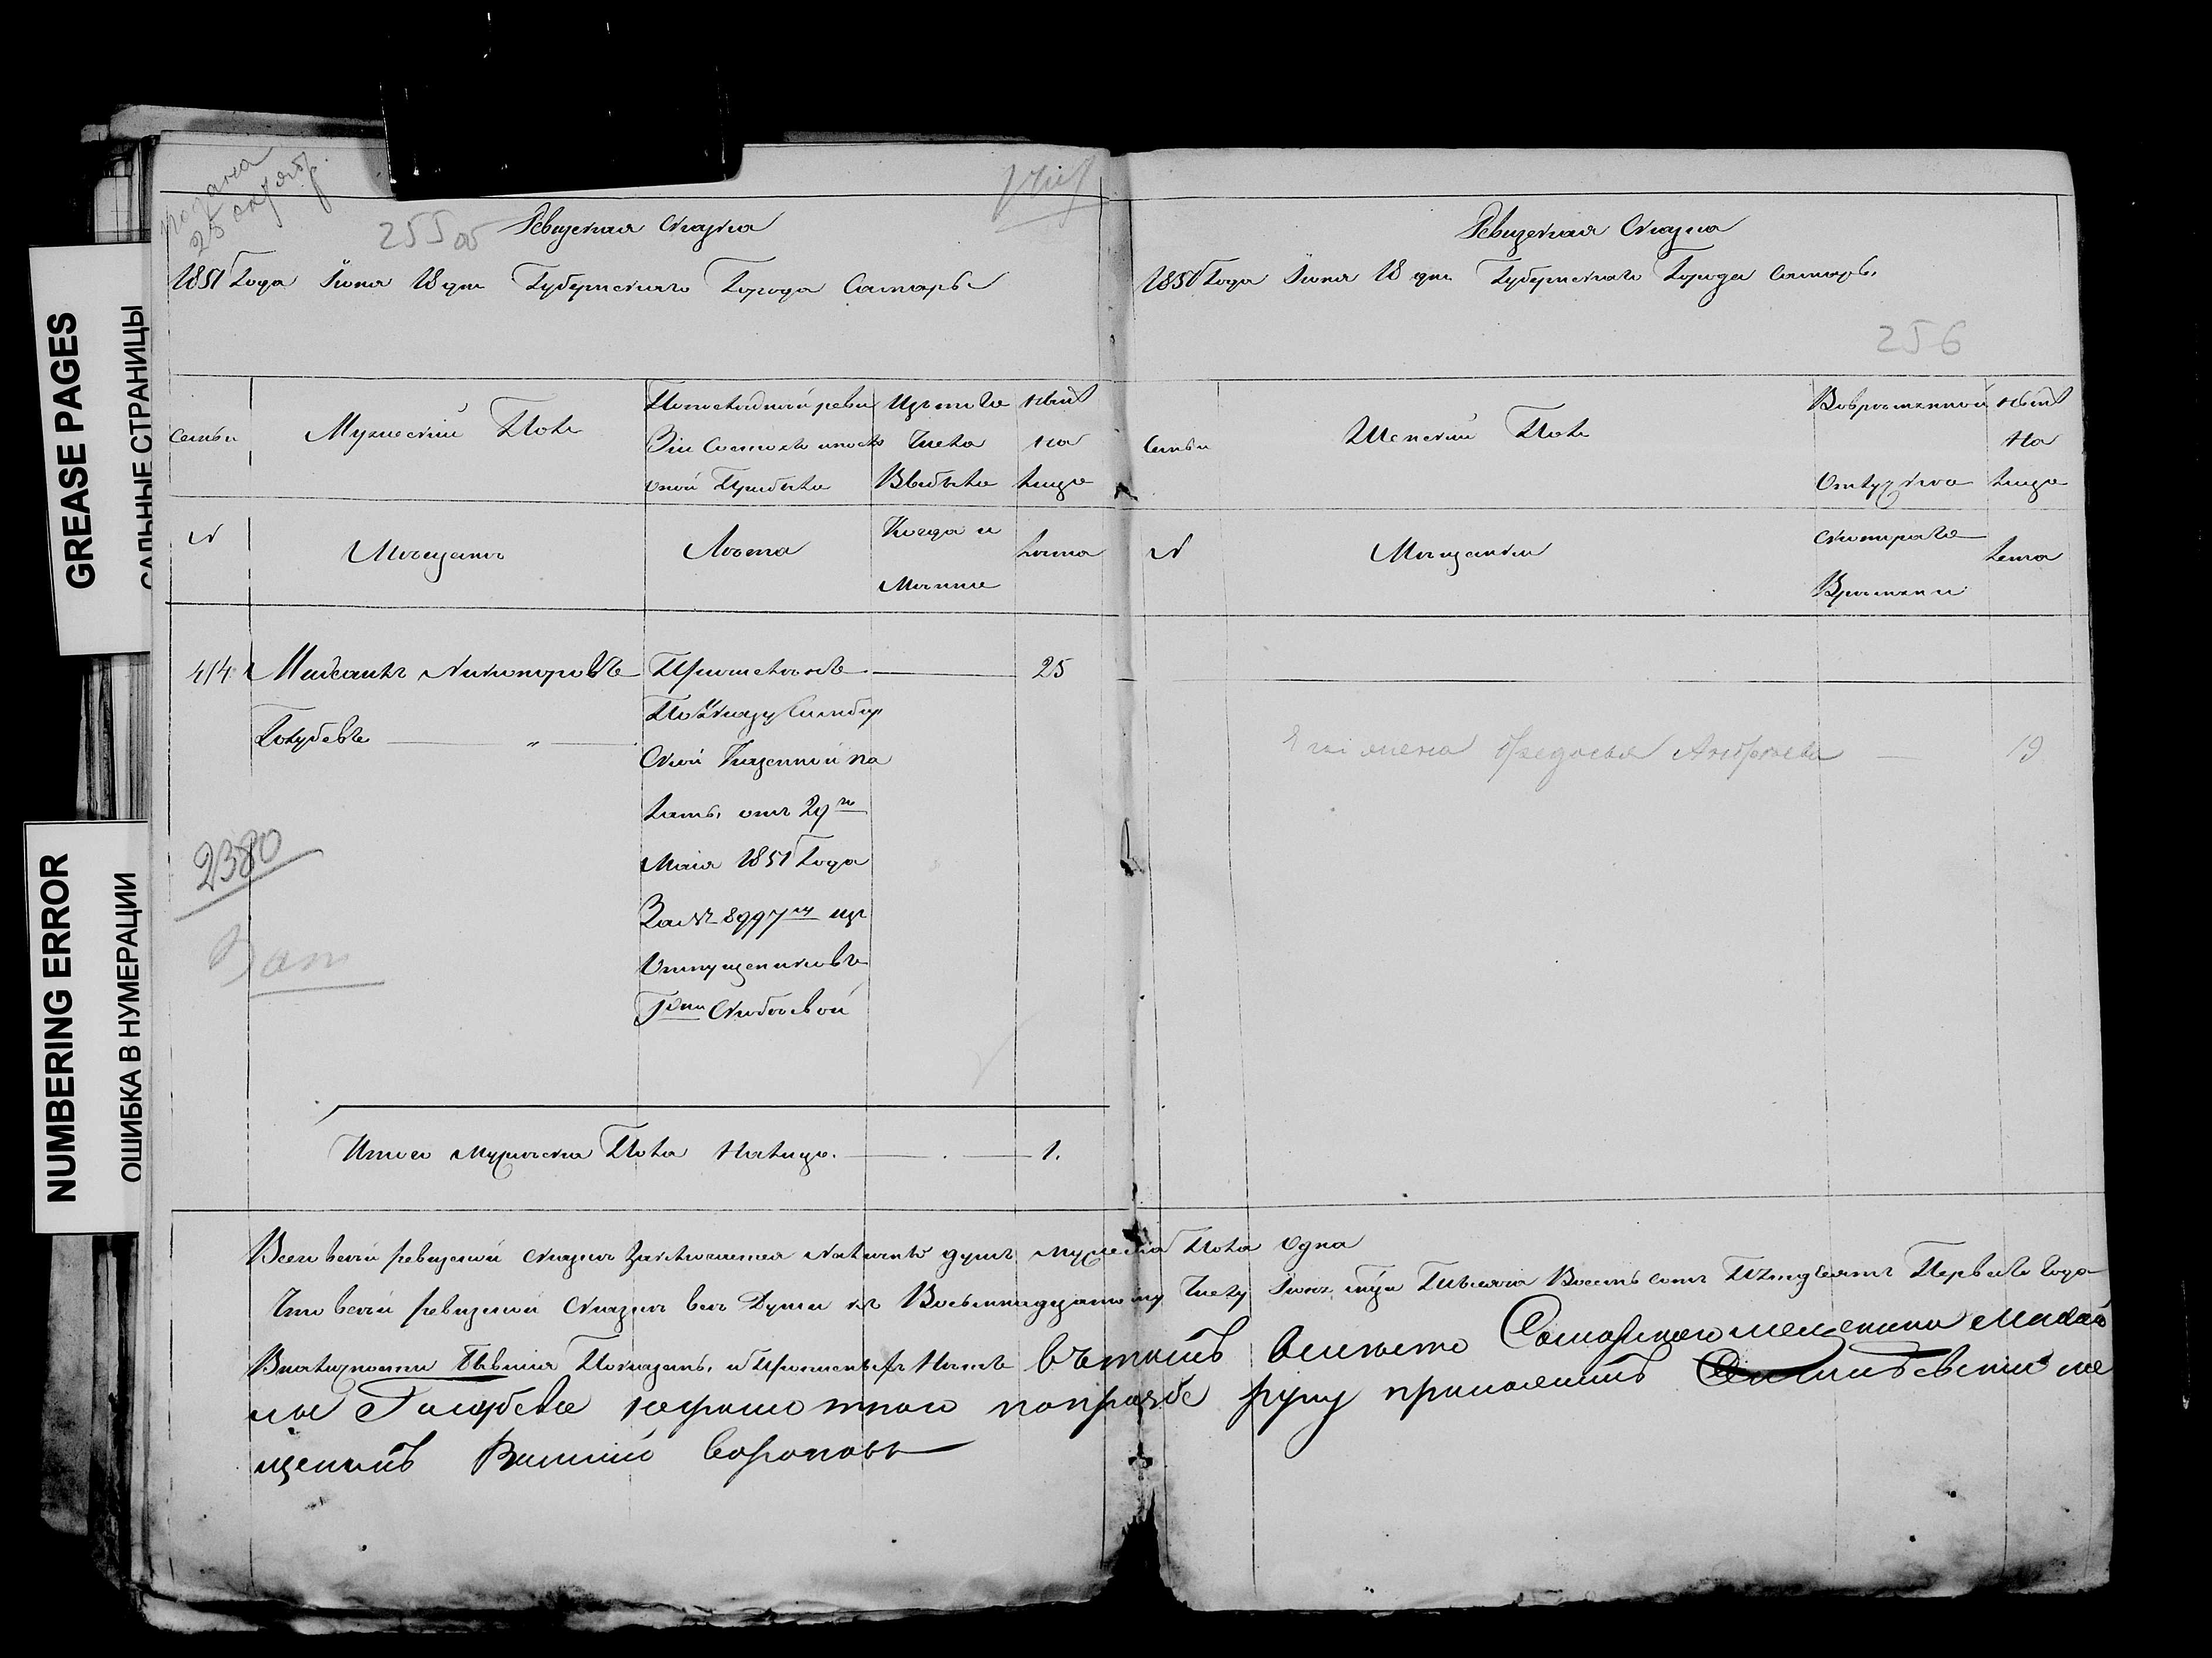 GREASE PAGES
САЛЬНЫЕ СТРАНИЦЫ
NUMBERING ERROR
ОШИБКА В НУМЕРАЦИИ
подана
25 октяб.
255 об
Ревизская Сказка
1851 Года Іюня 18 дня Губернскаго Города Самары
Семьи
Мужеский Полъ
По последней реви
зіи Состояло и после
оной Прибыло
Изъ того
Числа
Выбыло
Ныне
на
Лицо
№
Мещане
Лета
Когда и
Именно
Лета
414
Михаилъ Никоноровъ
Голубевъ
Причисленъ
По Указу Симбир
Ской Казенной па
латы, отъ 29го
Маія 1851 Года
За № 8997м изъ
Отпущениковъ
Гжи
25
2380
Итого Мужеска Пола Налицо. 1.
Ревизская Сказка
1851 Года Іюня 18 дня Губернскаго Города Самары
256
Семьи
Женский Полъ
Во временной
Отлучке
Ныне
на
Лицо
№
Мещанки
Скотораго
Времени
Лета
Его жена Федосья Андреева 19
Всего в сей ревизской Сказке заключается Наличныхъ душъ мужеска Пола Одна
Что в сей ревизской Сказке все Души къ Восемнадцатому Числу Іюня тысяча Восемь сотъ Пятьдесятъ Перваго Года
Въ наличности Бывшія Показаны, и Прописныхъ Нетъ въ томъ вместо Самарскаго мещанина Михай
ла Голубева неграмотнаго по прозбе руку приложилъ ме
щанинъ Василий Вороновъ